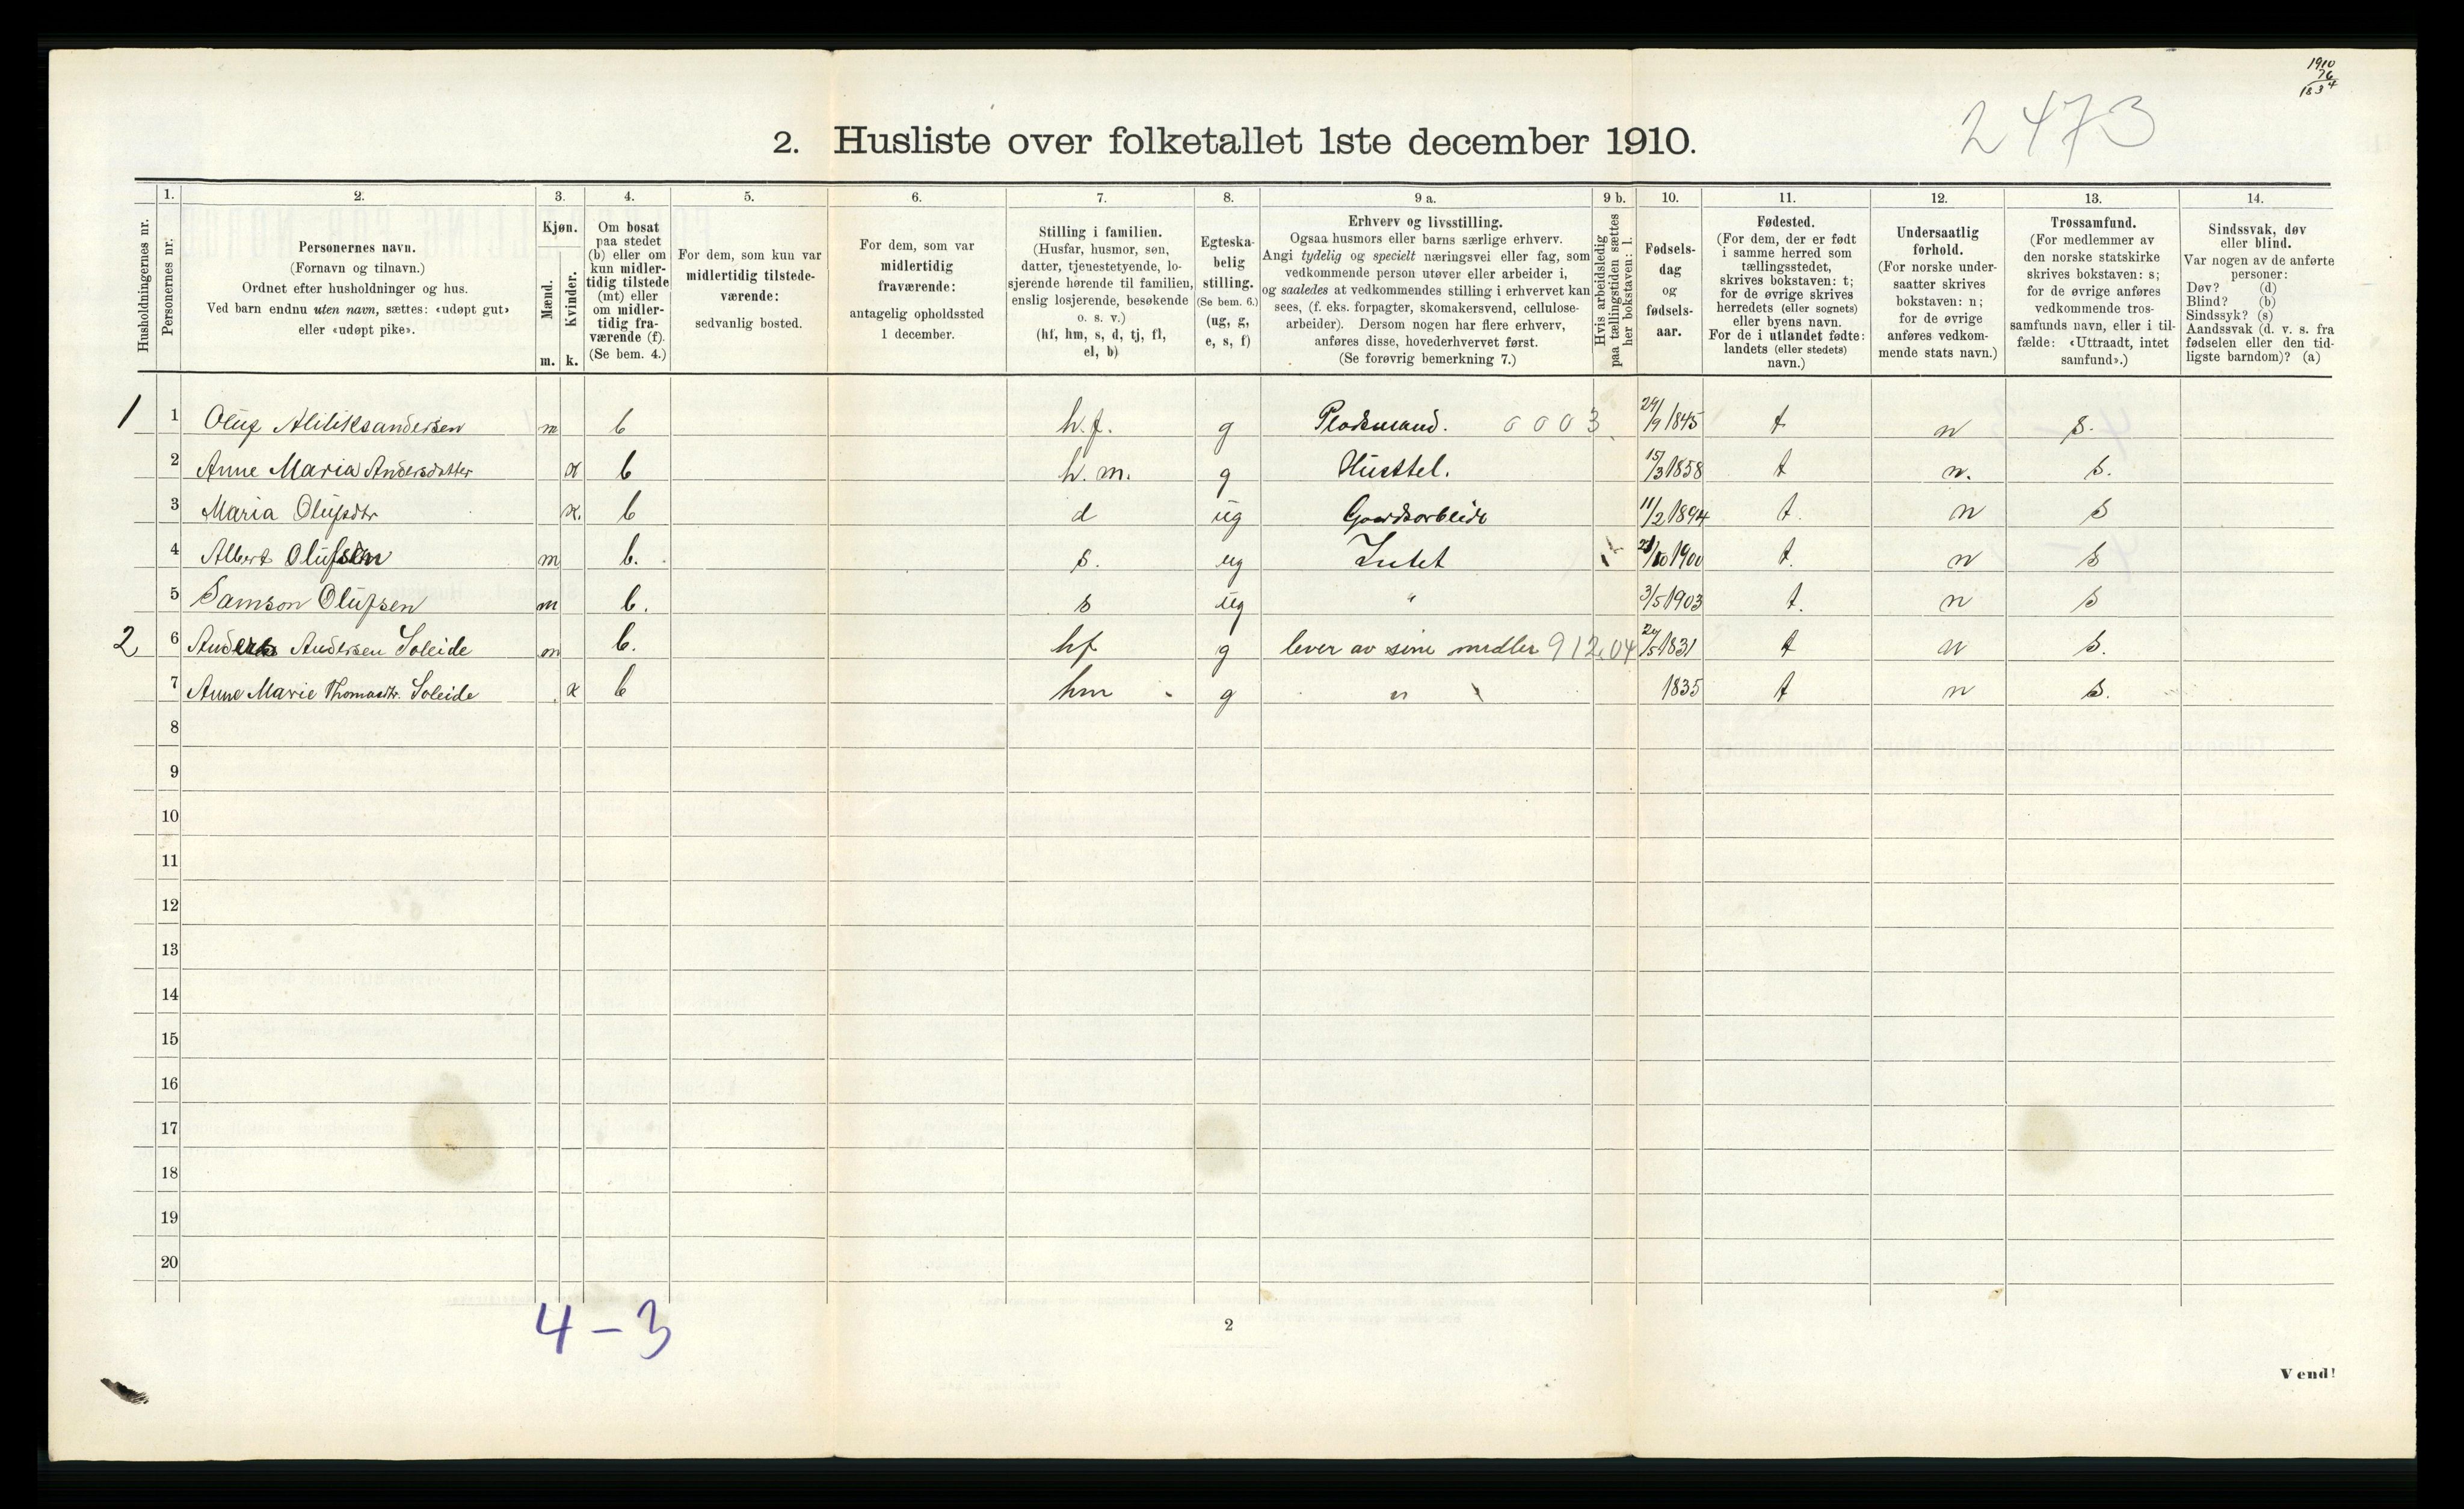 1910
76
1834
2473
2. Husliste over folketallet 1ste december 1910.
Husholdningernes nr.
1.
Personernes nr.
2.
Personernes navn.
(Fornavn og tilnavn.)
Ordnet efter husholdninger og hus.
Ved barn endnu uten navn, sættes: «udøpt gut»
eller «udøpt pike».
3.
Kjøn.
Mænd.
Kvinder.
m. k.
4.
Om bosat
paa stedet
(b) eller om
kun midler-
tidig tilstede
(mt) eller
om midler-
tidig fra-
værende (f).
(Se bem. 4.)
5.
For dem, som kun var
midlertidig tilstede-
værende:
sedvanlig bosted.
6.
For dem, som var
midlertidig
fraværende:
antagelig opholdssted
1 december.
7.
Stilling i familien.
(Husfar, husmor, søn,
datter, tjenestetyende, lo-
sjerende hørende til familien,
enslig losjerende, besøkende
o. s. v.)
(hf, hm, s, d, tj, fl,
el, b)
8.
Egteska-
belig
stilling.
(Se bem. 6.)
(ug, g,
e, s, f)
9 a.
Erhverv og livsstilling.
Ogsaa husmors eller barns særlige erhverv.
Angi tydelig og specielt næringsvei eller fag, som
vedkommende person utøver eller arbeider i,
og saaledes at vedkommendes stilling i erhvervet kan
sees, (f. eks. forpagter, skomakersvend, cellulose-
arbeider). Dersom nogen har flere erhverv,
anføres disse, hovederhvervet først.
(Se forøvrig bemerkning 7.)
9 b.
Hvis arbeidsledig
paa tællingstiden sættes
her bokstaven: l.
10.
Fødsels-
dag
og
fødsels-
aar.
11.
Fødested.
(For dem, der er født
i samme herred som
tællingsstedet,
skrives bokstaven: t;
for de øvrige skrives
herredets (eller sognets)
eller byens navn.
For de i utlandet fødte:
landets (eller stedets)
navn.)
12.
Undersaatlig
forhold.
(For norske under-
saatter skrives
bokstaven: n;
for de øvrige
anføres vedkom-
mende stats navn.)
13.
Trossamfund.
(For medlemmer av
den norske statskirke
skrives bokstaven: s;
for de øvrige anføres
vedkommende tros-
samfunds navn, eller i til-
fælde: «Uttraadt, intet
samfund».)
14.
Sindssvak, døv
eller blind.
Var nogen av de anførte
personer:
Døv? (d)
Blind? (b)
Sindssyk? (s)
Aandssvak (d. v. s. fra
fødselen eller den tid-
ligste barndom)? (a)
1 1 Oluf Aliliksandersen m b h.f. g Pladsmand. 0003 24/9 1845 t n s.
2 Anne Maria Andersdatter k b h.m. g Husstel. 15/3 1858 t n. s.
3 Maria Olufsdtr k. b d ug Gaardsarbeide 11/2 1894 t. n s
4 Albert Olufsen m b. s. ug Intet /10 1900 t. n s
5 Samson Olufsen m b. s ug " 3/5 1903 t. n s
2 6 Anders Andersen Soleide m b. hf g lever av sine midler 912.04 /5 1831 t n s.
7 Anne Marie Thomasdtr. Soleide k b hm g " 1835 t n s.
8
9
10
11
12
13
14
15
16
17
18
19
20
4-3
2
Vend!